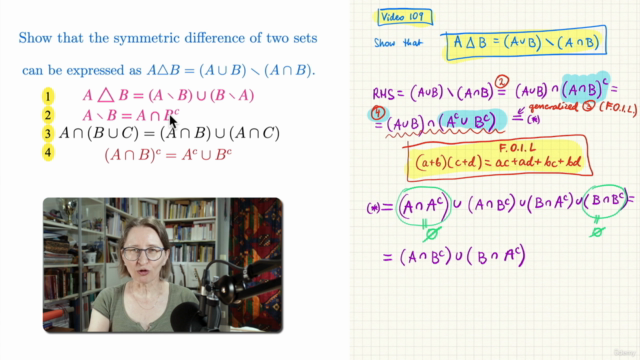 Show that the symmetric difference of two sets
can be expressed as A△B = (A ∪ B) ∖ (A ∩ B).
1 A △ B = (A ∖ B) ∪ (B ∖ A)
2 A ∖ B = A ∩ Bᶜ
3 A ∩ (B ∪ C) = (A ∩ B) ∪ (A ∩ C)
4 (A ∩ B)ᶜ = Aᶜ ∪ Bᶜ
Video 109
Show that A △ B = (A∪B) ∖ (A ∩ B)
RHS = (A∪B) ∖ (A∩B) =② (A∪B) ∩ (A∩B)ᶜ =
=④ (A∪B) ∩ (Aᶜ ∪ Bᶜ) = generalized ③ (F.O.I.L)
(*)
F.O.I.L
(a+b)(c+d) = ac+ad+bc+bd
(*) = (A ∩ Aᶜ) ∪ (A ∩ Bᶜ) ∪ (B ∩ Aᶜ) ∪ (B ∩ Bᶜ) =
∅ ∅
= (A ∩ Bᶜ) ∪ (B ∩ Aᶜ)